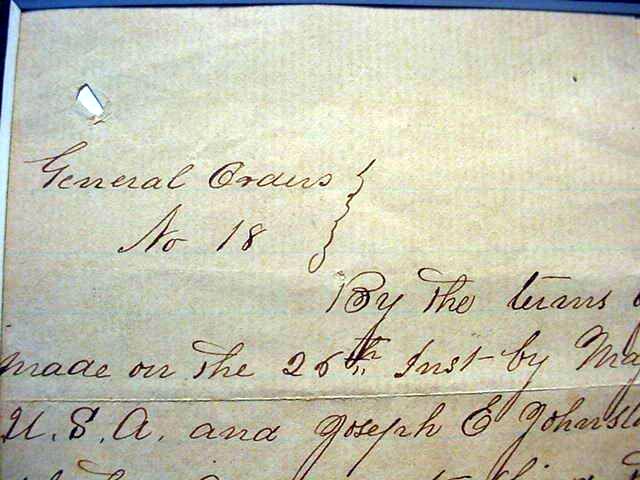 General Orders
No 18
By the terms
made on the 26th Inst by
U.S.A. and Joseph E